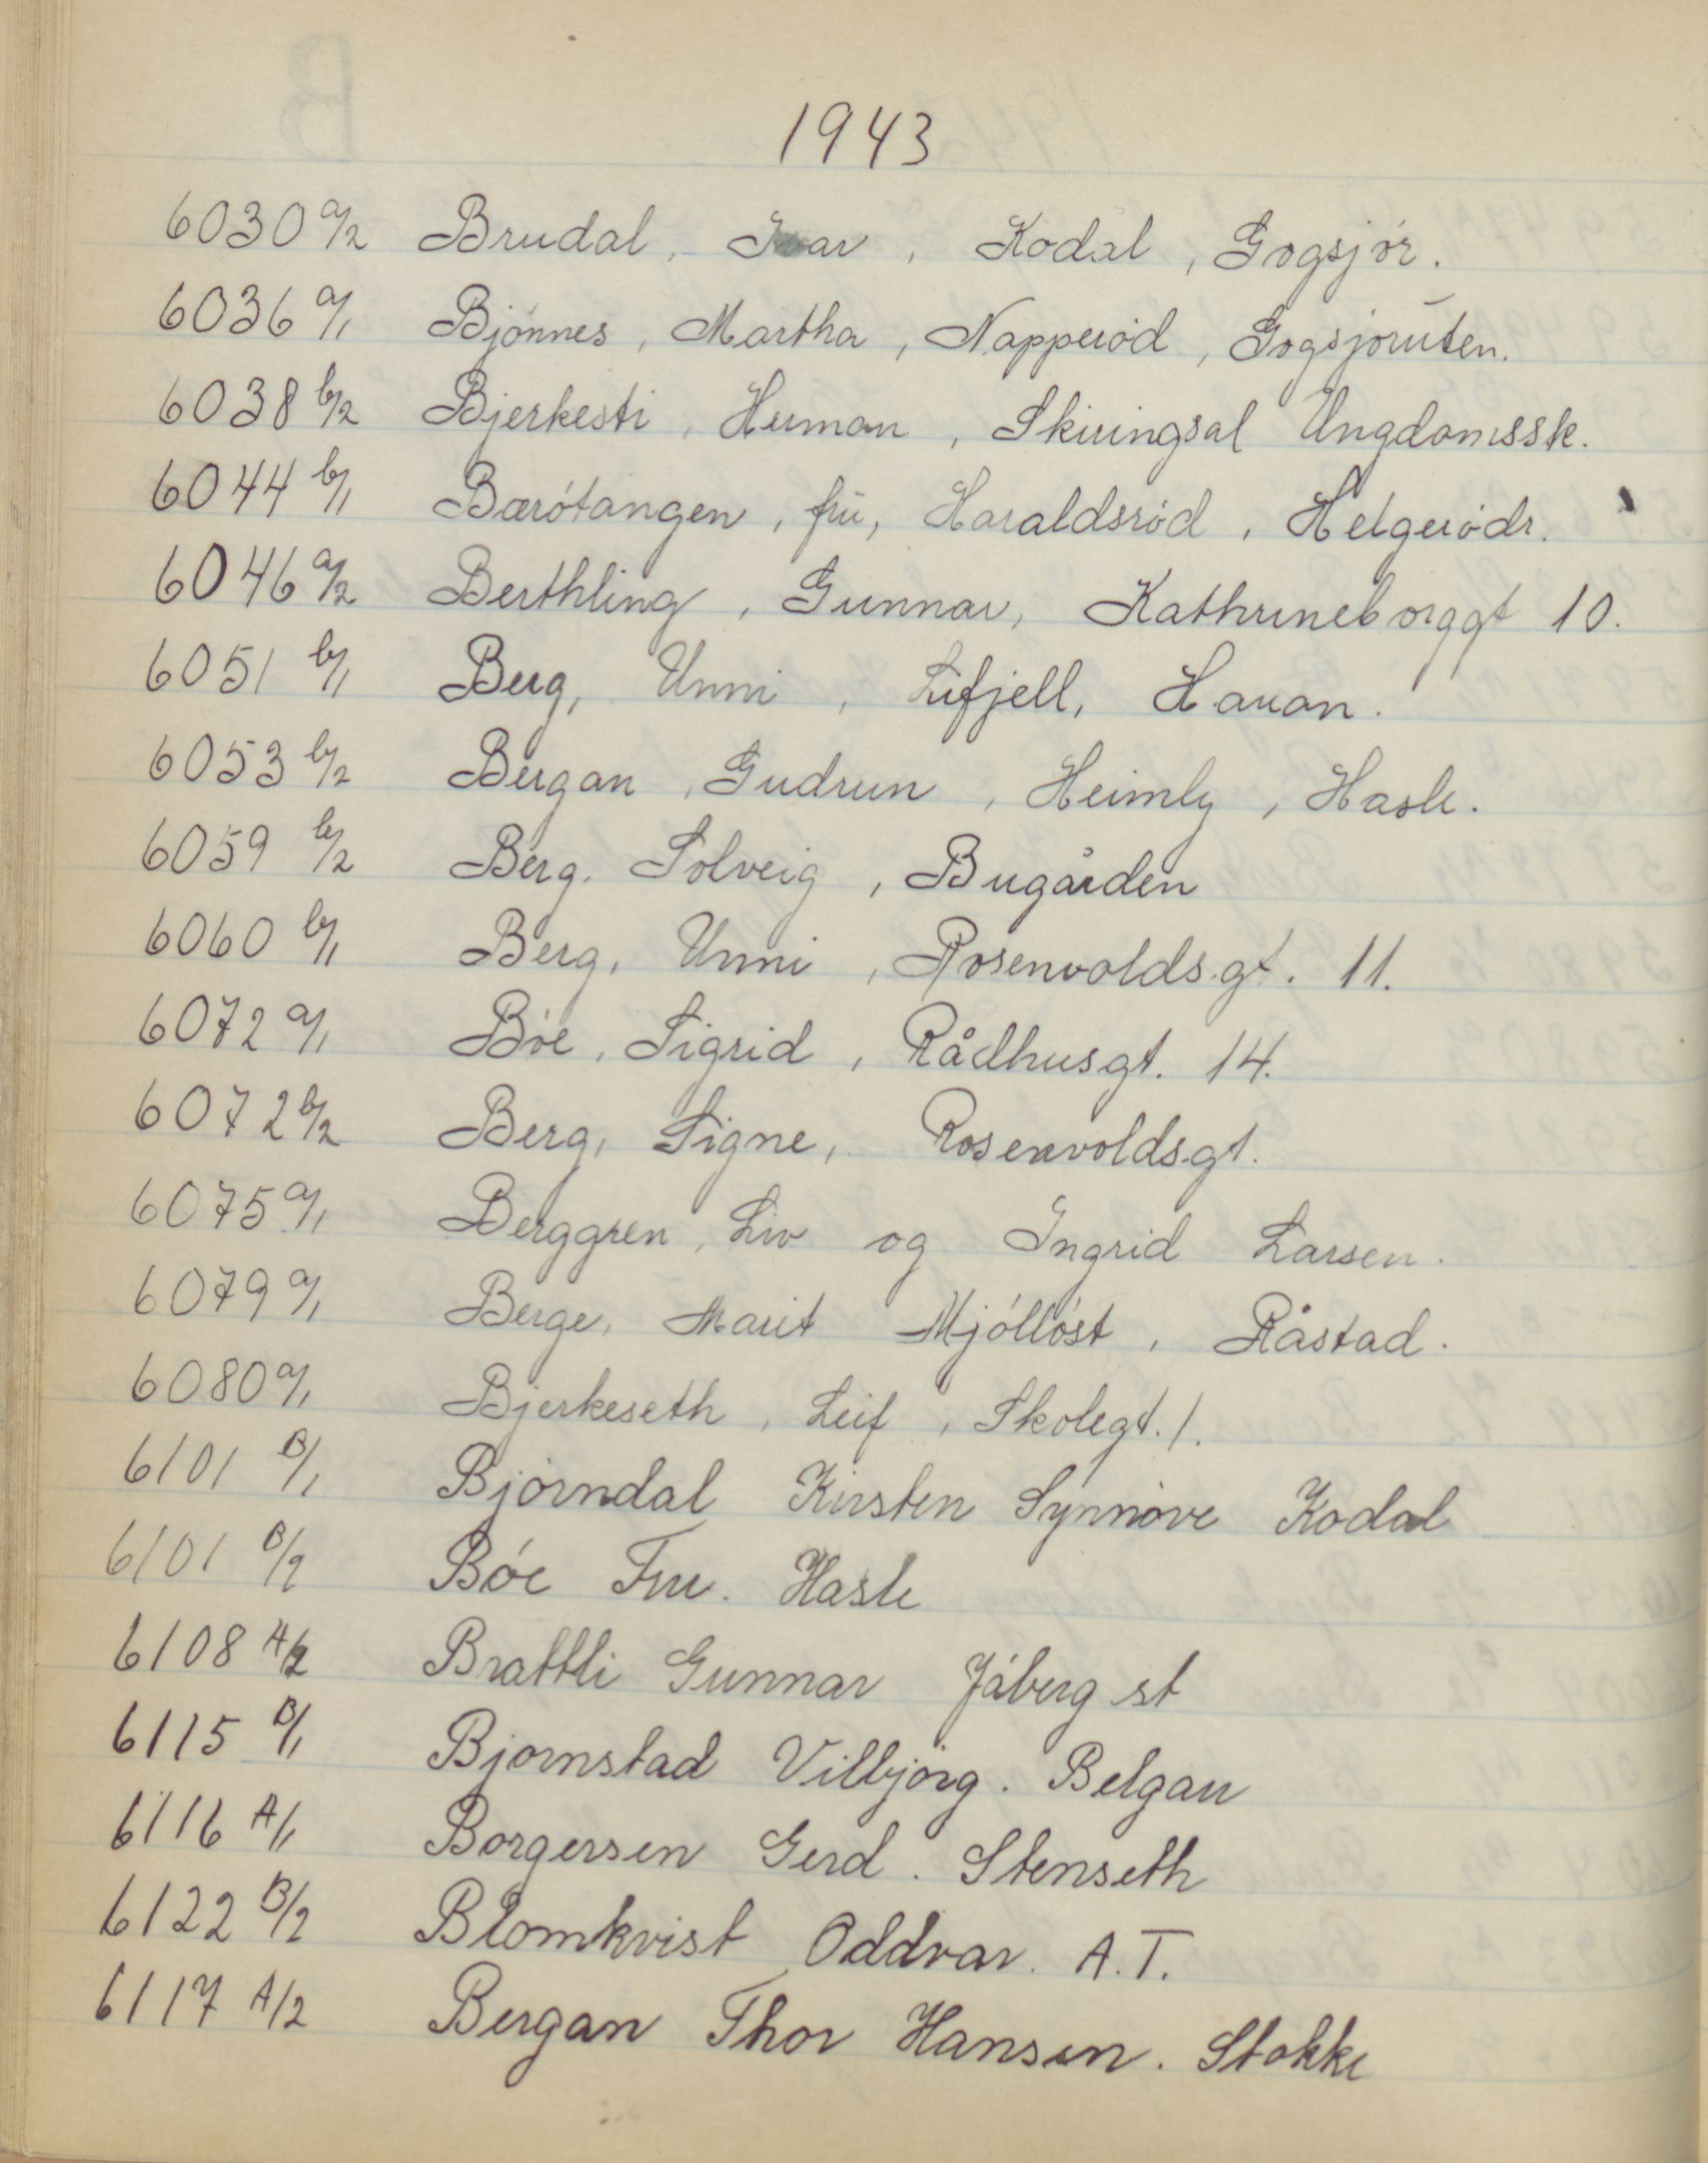 1943
6030 a/2 Brudal, Ivar, Kodal, Gogsjør.
6036 a/1 Bjønnes, Martha, Napperød, Gogsjøruten.
6038 b/2 Bjerkesti, Herman, Skiringsal Ungdomssk.
6044 b/1 Bærøtangen, fru, Haraldsrød, Helgerødr.
6046 a/2 Berthling, Gunnar, Kathrineborggt 10.
6051 b/1 Berg, Unni, Lifjell, Haran.
6053 b/2 Bergan, Gudrun, Heimly, Hasle.
6059 b/2 Berg. Solveig, Bugården
6060 b/1 Berg, Unni, Rosenvoldsgt. 11.
6072 a/1 Bøe, Sigrid, Rådhusgt. 14.
6072 b/2 Berg, Signe, Rosenvoldsgt.
6075 a/1 Berggren, Liv og Ingrid Larsen.
6079 a/1 Berge, Marit Mjølløst, Råstad.
6080 a/1 Bjerkeseth, Leif, Skolegt. 1.
6101 B/1 Bjørndal Kirsten Synnøve Kodal
6101 B/2 Bøe Fru. Hasle
6108 A/2 Brattli Gunnar Jåberg st
6115 B/1 Bjørnstad Vilbjørg. Belgau
6116 A/1 Borgersen Gerd. Stenseth
6122 B/2 Blomkvist Oddvar. A.T.
6117 A/2 Bergan Thor Hansen. Stokke